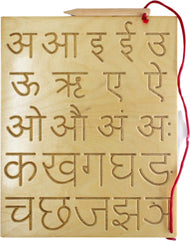 अ आ इ ई उ
ऊ ऋ ए ऐ
ओ औ अं अः
क ख ग घ ङ
च छ ज झ ञ